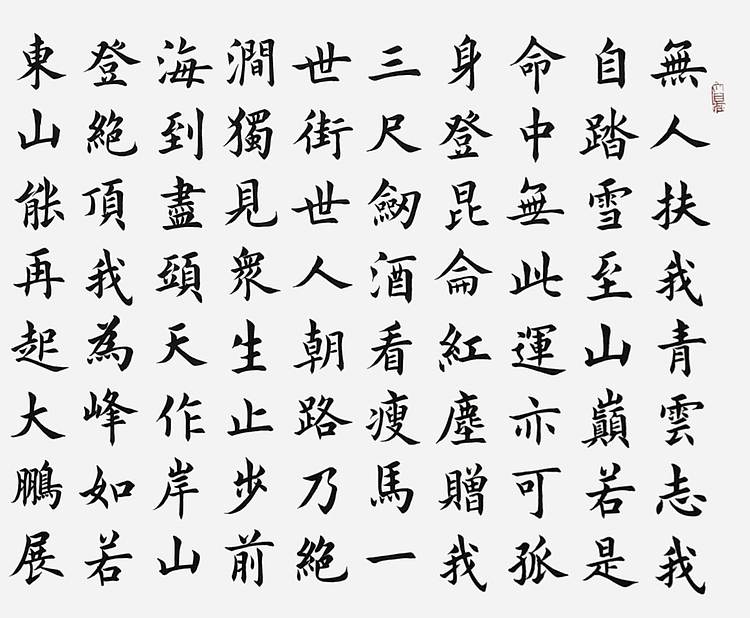 無人扶我青雲志我
自踏雪至山巔若是
命中無此運亦可孤
身登昆侖紅塵贈我
三尺劒酒看瘦馬一
世街世人朝路乃絕
澗獨見衆生止步前
海到盡頭天作岸山
登絕頂我為峰如若
東山能再起大鵬展